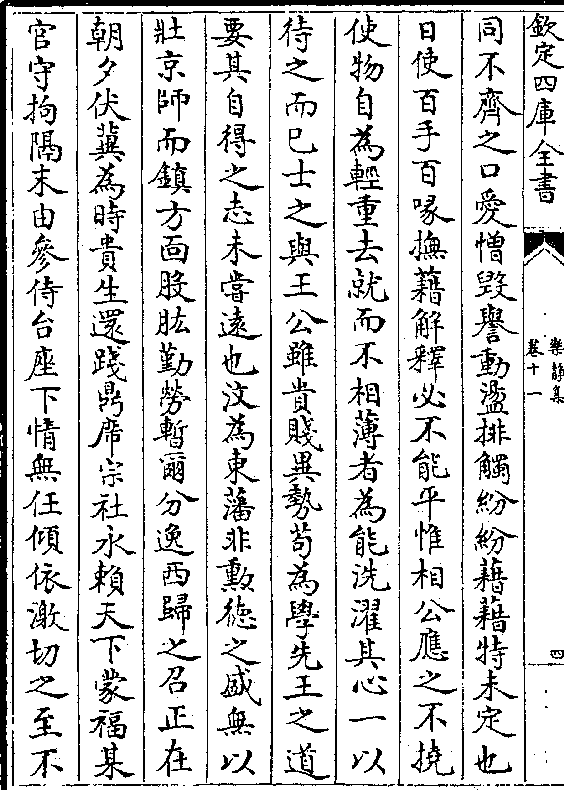 欽定四庫全書
樂静集
卷十一
四
同不齊之口愛憎毀譽動盪排觸紛紛藉藉特未定也
日使百手百喙撫藉解釋必不能平惟相公應之不撓
使物自為輕重去就而不相薄者為能洗濯其心一以
待之而已士之與王公雖貴賤異勢苟為學先王之道
要其自得之志未嘗遠也汶為東藩非勲徳之盛無以
壯京師而鎮方面股肱勤勞暫爾分逸西歸之召正在
朝夕伏冀為時貴生還踐鼎席宗社永賴天下蒙福某
官守拘隔末由參侍台座下情無任傾依激切之至不